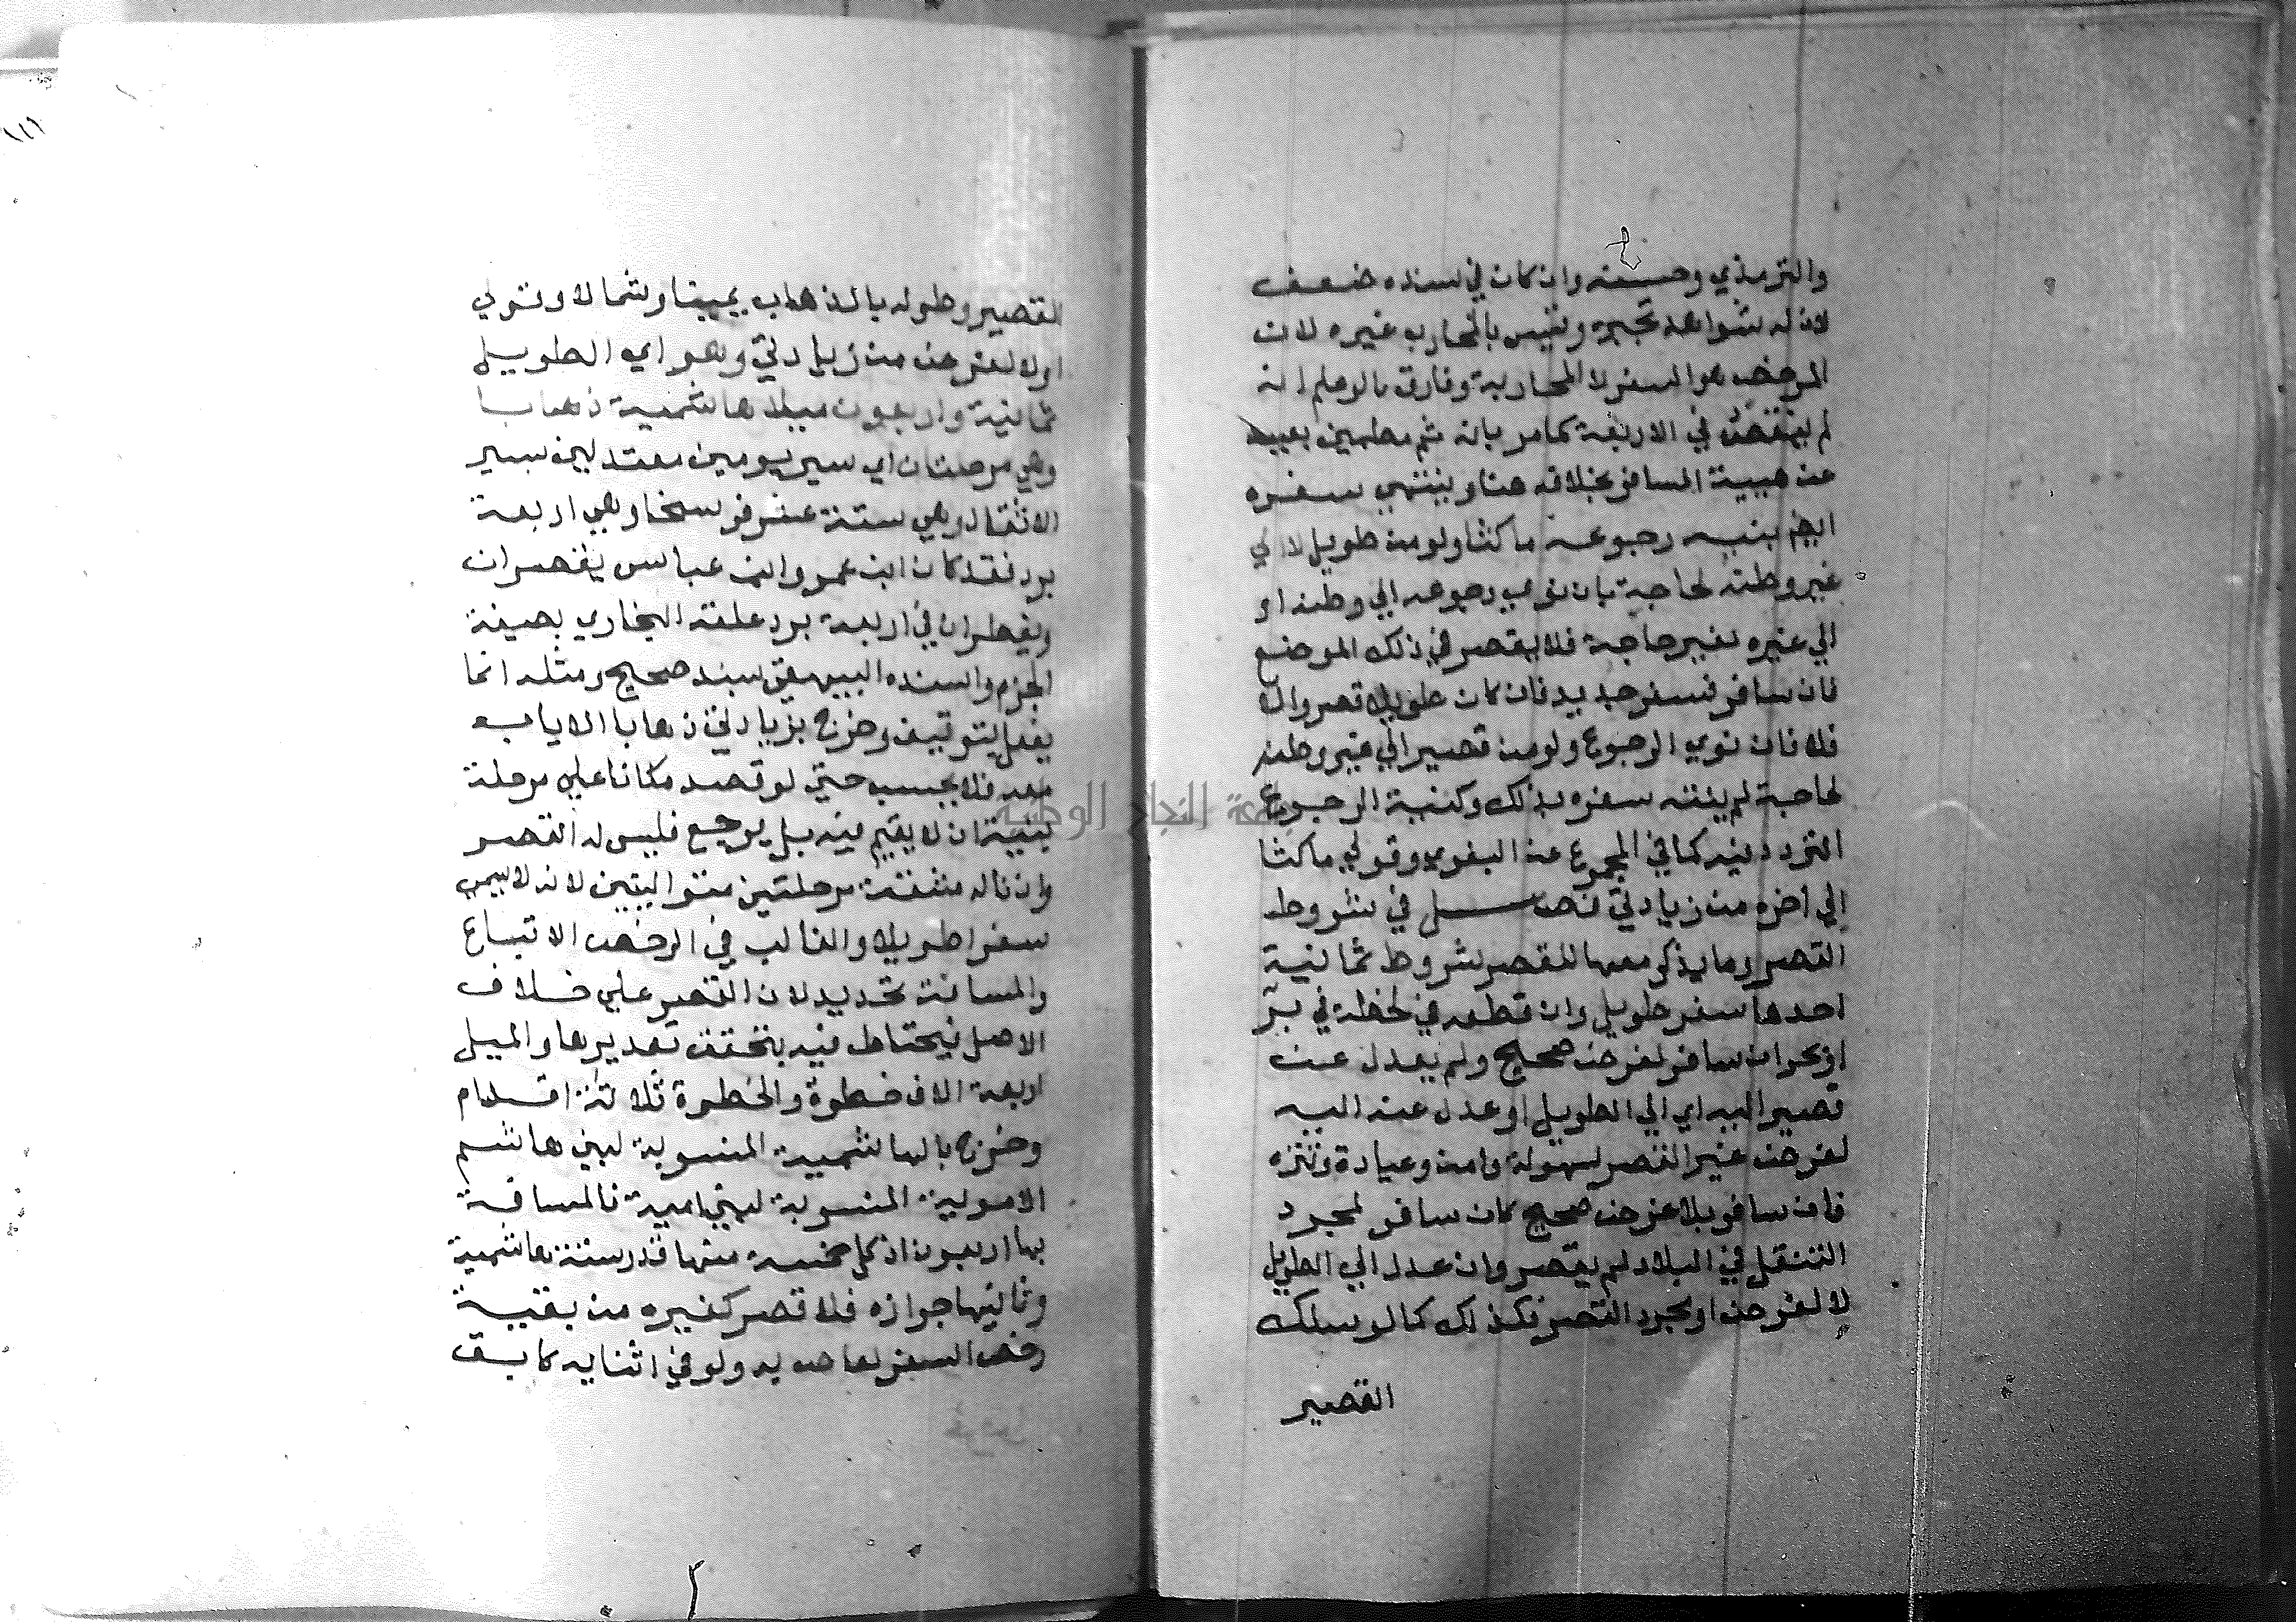 والترمذي وحسنه وان كان في سنده ضعف
لان له شواهد تجبره وقيس بالمحارب غيره لان
المرخص هو السفر لا المحاربة وفارق مالو علم انه
لم ينقض في الاربعة كما مر بانه ثم مطمين بعيد
عن هيية المسافر بخلافه هنا وينتهي سفره
ايضا بنية رجوعه ماكثا ولو من طويل لا الي
غير وطنه لحاجة بان نوي رجوعه الي وطنه او
الي غيره لغير حاجة فلا يقصر في ذلك الموضع
فان سافر فسفر جديد فان كان طويلا قصر والا
فلا فان نوي الرجوع ولو من قصير الي غير وطنه
لحاجة لم ينته سفره بذلك وكنية الرجوع
التردد فيه كما في المجموع عن البغوي وقولي ماكثا
الي اخره من زيادتي فصل في شروط
القصر وما يذكر معها للقصر شروط ثمانية
احدها سفر طويل وان قطعه في لحظة في بر
او بحر ان سافر لغرض صحيح ولم يعدل عن
قصير اليه اي الي الطويل او عدل عنه اليه
لغرض غير القصر لسهولة وامن وعيادة وتنزه
فان سافر بلا غرض صحيح كان سافر لمجرد
التنقل في البلاد لم يقصر وان عدل الي الطويل
لا لغرض او لمجرد القصر فكذلك كما لو سلك
القصير
القصير وطوله بالذهاب يمينا وشمالا وقولي
اولا لغرض من زيادتي وهو اي الطويل
ثمانية واربعون ميلا هاشمية ذهابا
وهي مرحلتان اي سير يومين معتدلين بسير
الاثقال وهي ستة عشر فرسخا وهي اربعة
برد فقد كان ابن عمر وابن عباس يقصران
ويفطران في اربعة برد علقه البخاري بصيغة
الجزم واسنده البيهقي بسند صحيح ومثله انما
يفعل بتوقيف وخرج بزيادتي ذهابا الاياب
معه فلا يحسب حتي لو قصد مكانا علي مرحلة
بنية ان لا يقيم فيه بل يرجع فليس له القصر
وان ناله مشقة مرحلتين متواليتين لانه لا يسمي
سفرا طويلا والغالب في الرخص الاتباع
والمسافة تحديد لان القصر علي خلاف
الاصل فيحتاط فيه بتحقق تقديرها والميل
اربعة الاف خطوة والخطوة ثلاثة اقدام
وخرج بالهاشمية المنسوبة لبني هاشم
الاموية المنسوبة لبني امية فالمسافة
بها اربعون اذ كل خمسة منها قدر ستة هاشمية
وثانيها جوازه فلا قصر كغيره من بقية
رخص السفر لعاص به ولو في اثنايه كابق
جامعة النجاح الوطنية